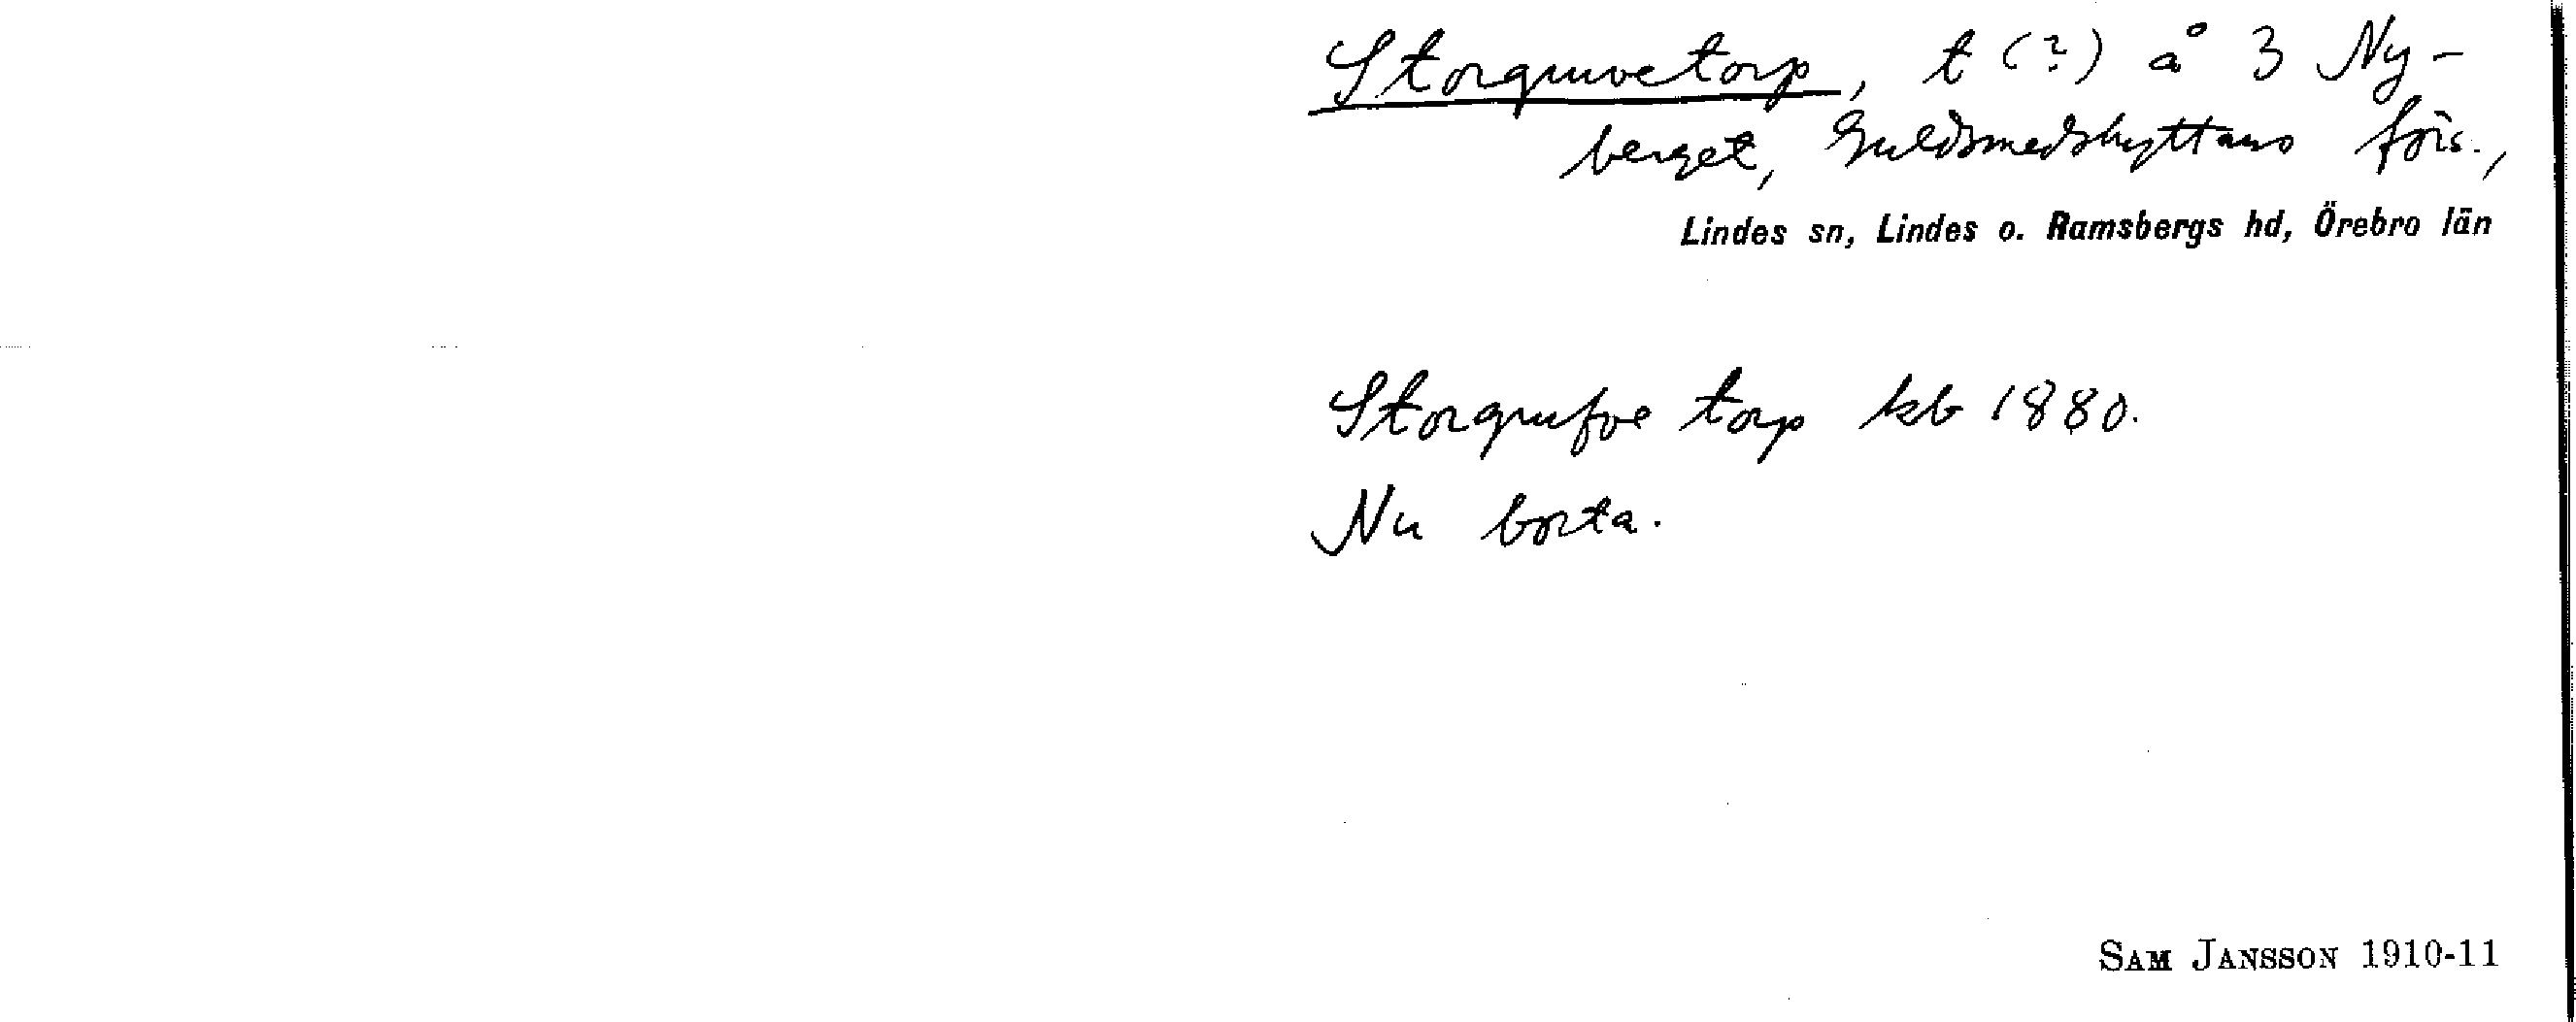 Storgruvetorp, t (?) å 3 Ny-
berget, Guldsmedshyttans förs.,
Lindes sn, Lindes o. Ramsbergs hd, Örebro län
Storgrufve torp kb 1880.
Nu borta.
SAM JANSSON 1910-11